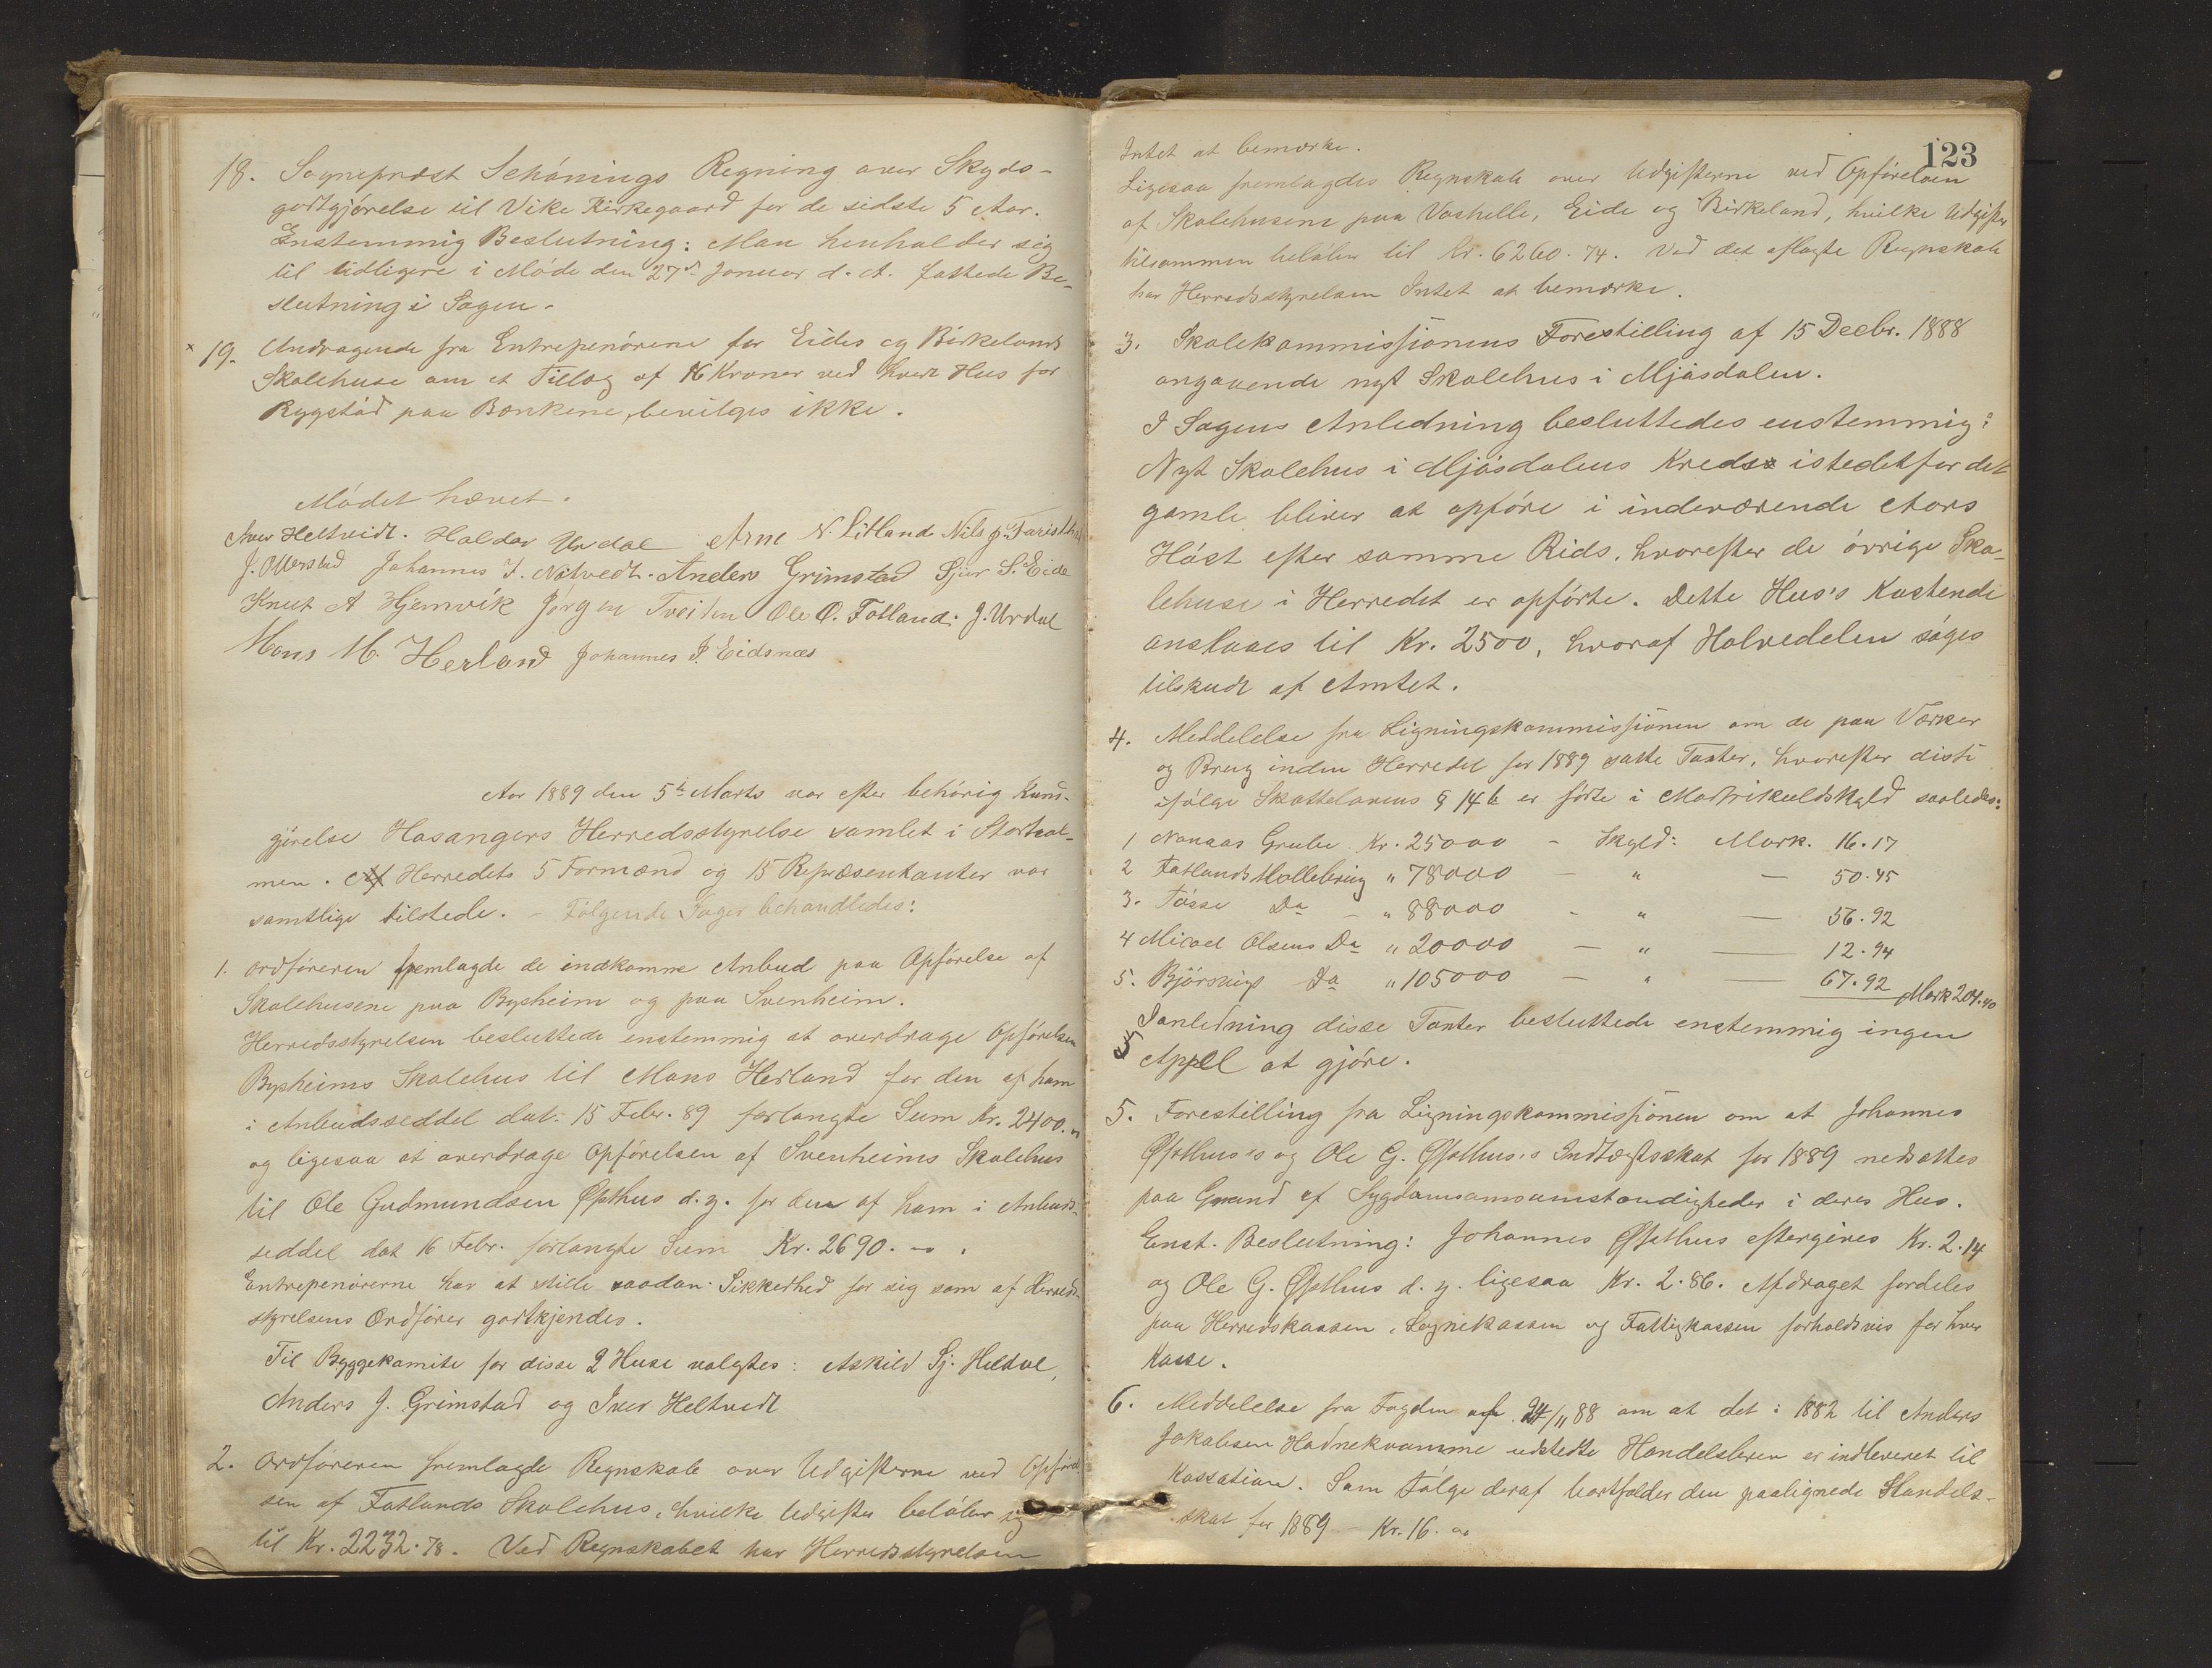 18. Sognepræst Schönings Regning over Skyds-
godtgjørelse til Vike Kirkegaard for de sidste 5 Aar.
Enstemmig Beslutning: Man henholder sig
til tidligere i Møde den 27de Januar d. A. fattede Be-
slutning i Sagen.
19. Andragende fra Entrepenørene for Eides og Birkelands
Skolehuse om et Tillæg af 16 Kroner ved hvert Hus for
Rygstød paa Bænkene, bevilges ikke.
Mødet hævet.
Iver Heltveidt. Haldor Urdal Arne N. Litland Nils J.
J. Otterstad Johannes J. Nötvedt. Anders Grimstad Sjur S. Eide
Knut A Hjemvik Jørgen Tveiten Ole O. Fotland. J. Urdal
Mons M. Herland Johannes J. Eidsnæs
Aar 1889 den 5te Marts var efter behørig Kund-
gjørelse Hosangers Herredsstyrelse samlet i
men. Af Herredets 5 Formænd og 15 Repræsentanter var
samtlige tilstede. - Følgende Sager behandledes:
1. Ordføreren fremlagde de indkomne Anbud paa Opførelse af
Skolehusene paa Bysheim og paa Svenheim.
Herredsstyrelsen besluttede enstemmig at overdrage Opførelsen
Bysheims Skolehus til Mons Herland for den af ham
i Anbudsseddel dat. 15 Febr. 89 forlangte Sum Kr. 2400.
og ligesaa at overdrage Opførelsen af Svenheims Skolehus
til Ole Gudmundsen Øfsthus d. y. for den af ham i Anbuds-
seddel dat 16 Febr. forlangte Sum Kr. 2690. -
Entrepenørerne har at stille saadan Sikkerhed for sig som af Herreds-
styrelsens Ordfører godtkjendes.
Til Byggekomite for disse 2 Huse valgtes: Askild Sj. Heldal,
Anders J. Grimstad og Iver Heltvedt
2. Ordføreren fremlagde Regnskab over Udgifterne ved Opførel
sen af Fatlands Skolehus, hvilke Udgifter beløber sig
til Kr. 2232.78. Ved Regnskabet har Herredsstyrelsen
123
Intet at bemærke.
Ligesaa fremlagdes Regnskab over Udgifterne ved Opførelsen
af Skolehusene paa Vashelle, Eide og Birkeland, hvilke Udgifter
tilsammen beløber til Kr. 6260.74. Ved det aflagte Regnskab
har Herredsstyrelsen Intet at bemærke.
3. Skolekommissionens Forestilling af 15 Decbr. 1888
angaaende nyt Skolehus i Mjøsdalen.
I Sagens Anledning besluttedes enstemmig:
Nyt Skolehus i Mjøsdalens Kreds istedetfor det
gamle bliver at opføre i indeværende Aars
Høst efter samme Rids, hvorefter de øvrige Sko-
lehuse i Herredet er opførte. Dette Hus's Kostende
anslaaes til Kr. 2500, hvoraf Halvedelen søges
tilskudt af Amtet.
4. Meddelelse fra Ligningskommissionen om de paa Værker
og Brug inden Herredet for 1889 satte Taxter, hvorefter disse
ifølge Skattelovens § 14 b er førte i Matrikulskyld saaledes:
1 Nonaas Grube Kr. 25000 - Skyld: Mark. 16.17
2 Fatlands Møllebrug " 78000 - " - 50.45
3. Tøsse Do - " 88000 - " - 56.92
4 Micael Olsens Do " 20000 - " - 12.94
5. Bjørsvigs Do " 105000 - " - 67.92 Mark 204.40
Ianledning disse Taxter besluttede enstemmig ingen
Appel at gjøre.
5. Forestilling fra Ligningskommissionen om at Johannes
Øfsthus's og Ole G. Øfsthus's Indtægtsskat for 1889 nedsattes
paa Grund af Sygdomsomstændigheder i deres Hus.
Enst. Beslutning: Johannes Øfsthus eftergives Kr. 2.14
og Ole G. Øfsthus d. y. ligesaa Kr. 2.86. Afdraget fordeles
paa Herredskassen, Sognekassen og Fattigkassen forholdsvis for hver
Kasse.
6. Meddelelse fra Fogden af 24/11 88 om at det i 1882 til Anders
Jakobsen Hodnekvamme udstedte Handelsbrev er indleveret til
Kassation. Som Følge deraf bortfalder den paalignede Handels-
skat for 1889 - Kr. 16.00